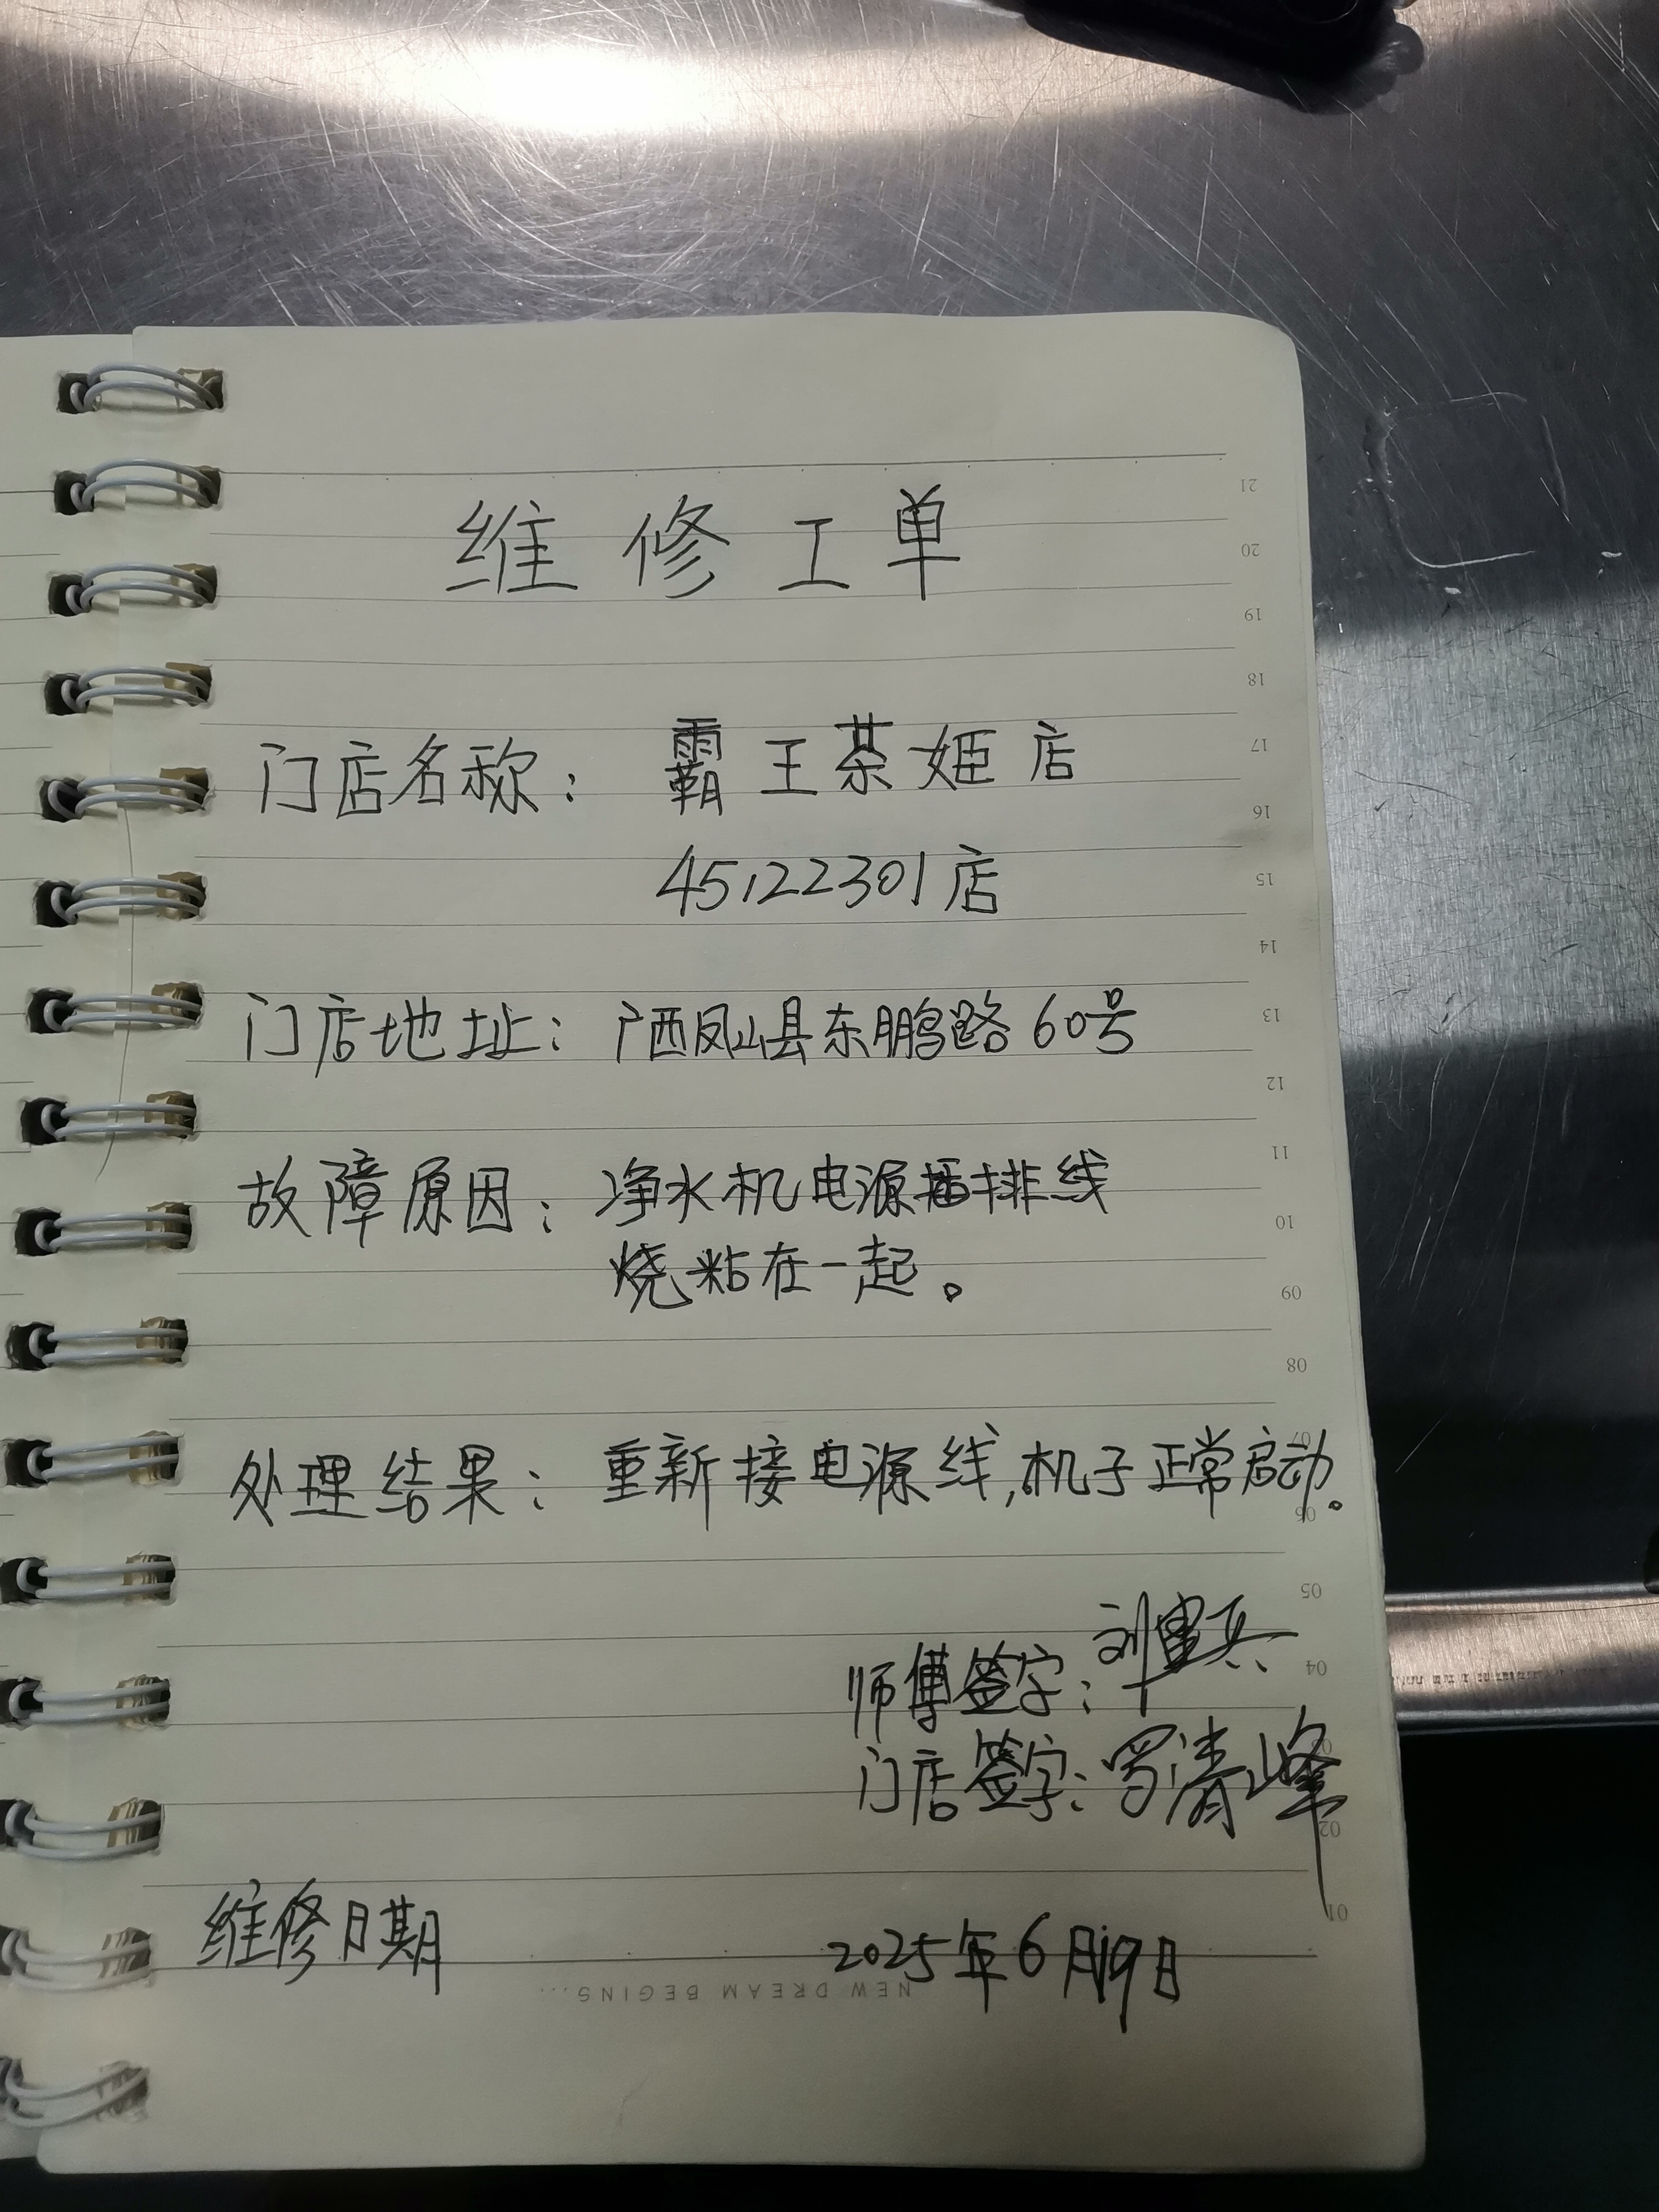 维修工单
门店名称：霸王茶姬店
45122301店
门店地址：广西凤山县东鹏路60号
故障原因：净水机电源插排线
烧粘在一起。
处理结果：重新接电源线,机子正常启动。
师傅签字：刘 兵
门店签字：罗清峰
维修日期 2025年6月19日
NEW DREAM BEGINS...
21
20
19
18
17
16
15
14
13
12
11
10
09
08
07
06
05
04
03
02
01